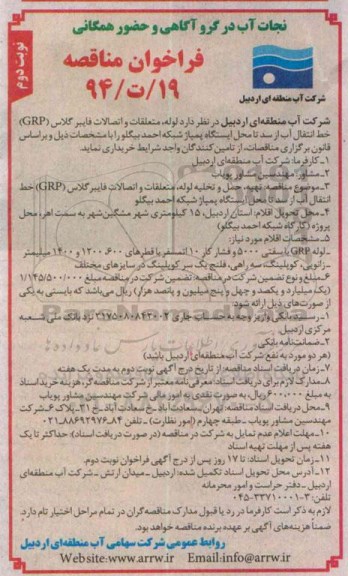 نجات آب در گرو آگاهی و حضور همگانی
فراخوان مناقصه
۱۹/ت/۹۴
نوبت دوم
شرکت آب منطقه ای اردبیل
شرکت آب منطقه‌ای اردبیل در نظر دارد لوله، متعلقات و اتصالات فایبر گلاس (GRP)
خط انتقال آب از سد تا محل ایستگاه پمپاژ شبکه احمد بیگلو را با مشخصات ذیل و براساس
قانون برگزاری مناقصات، از تامین کنندگان واجد شرایط خریداری نماید.
۱-کارفرما: شرکت آب منطقه‌ای اردبیل
۲-مشاور: مهندسین مشاور پویاب
۳-موضوع مناقصه: تهیه، حمل و تخلیه لوله، متعلقات و اتصالات فایبر گلاس (GRP) خط
انتقال آب از سد تا محل ایستگاه پمپاژ شبکه احمد بیگلو
۴-محل تحویل اقلام: استان اردبیل، ۱۵ کیلومتری شهر مشگین شهر به سمت اهر، محل
پروژه (کارگاه شبکه احمد بیگلو)
۵-مشخصات اقلام مورد نیاز:
-لوله GRP با سفتی ۵۰۰۰ و فشار کار ۱۰ اتمسفر با قطرهای ۶۰۰، ۱۲۰۰ و ۱۴۰۰ میلیمتر
-زانویی، کوپلینگ، سه راهی، فلنج یک سر کوپلینگ در سایزهای مختلف
۶-مبلغ و نوع تضمین شرکت در مناقصه: تضمین شرکت در مناقصه مبلغ ۱/۱۴۵/۵۰۰/۰۰۰
(یک میلیارد و یکصد و چهل و پنج میلیون و پانصد هزار) ریال می‌باشد که بایستی به یکی
از صورت‌های ذیل ارائه شود:
۱-رسید بانکی واریز وجه به حساب جاری ۲۱۷۵۰۸۰۸۴۳۰۰۲ نزد بانک ملی شعبه
مرکزی اردبیل.
۲-ضمانتنامه بانکی
(هر دو مورد به نفع شرکت آب منطقه‌ای اردبیل باشد)
۷-زمان دریافت اسناد مناقصه: از تاریخ درج آگهی نوبت دوم به مدت یک هفته
۸-مدارک لازم برای دریافت اسناد: معرفی نامه معتبر از شرکت مناقصه گر، هزینه خرید اسناد
به مبلغ ۶۰۰،۰۰۰ ریال، به صورت نقدی به امور مالی شرکت مهندسین مشاور پویاب
۹-محل دریافت اسناد مناقصه: تهران- سعادت آباد- خ سعادت آباد- خ ۳۱- پلاک ۶- شرکت
مهندسین مشاور پویاب- طبقه چهارم (امور نظارت)- تلفن ۸۴-۸۸۶۹۲۹۷۶-۰۲۱
۱۰-مهلت اعلام عدم تمایل به شرکت در مناقصه (در صورت دریافت اسناد): حداکثر تا یک
هفته پس از مهلت تهیه اسناد
۱۱-زمان تحویل اسناد: تا ۱۷ روز پس از درج آگهی فراخوان نوبت دوم.
۱۲-آدرس محل تحویل اسناد تکمیل شده: اردبیل- میدان ارتش- شرکت آب منطقه‌ای
اردبیل- دفتر حراست و امور محرمانه
تلفن: ۳-۳۳۷۱۰۰۰۱-۰۴۵
لازم به ذکر است کارفرما در رد یا قبول مدارک مناقصه‌گران در تمام مراحل اختیار تام دارد.
ضمناً هزینه‌های آگهی بر عهده برنده مناقصه خواهد بود.
روابط عمومی شرکت سهامی آب منطقه‌ای اردبیل
Website:www.arrw.ir Email:info@arrw.ir